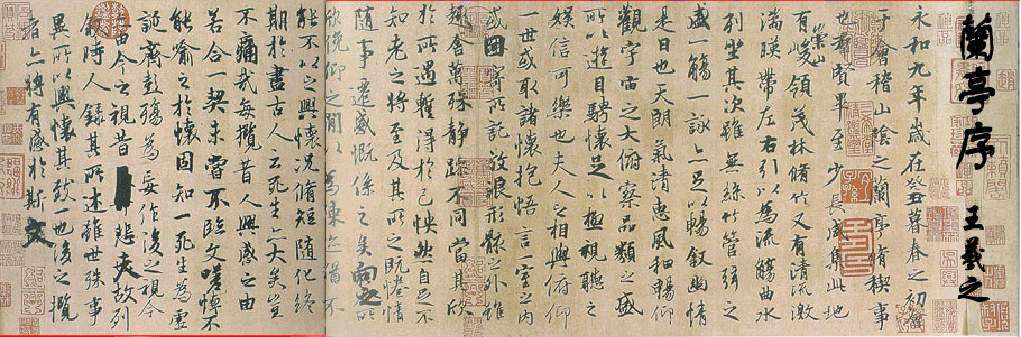 蘭亭序 王羲之
永和九年歲在癸丑暮春之初會
于會稽山陰之蘭亭脩稧事
也群賢畢至少長咸集此地
有崇山峻領茂林脩竹又有清流激
湍暎帶左右引以為流觴曲水
列坐其次雖無絲竹管弦之
盛一觴一詠亦足以暢敘幽情
是日也天朗氣清惠風和暢仰
觀宇宙之大俯察品類之盛
所以遊目騁懷足以極視聽之
娛信可樂也夫人之相與俯仰
一世或取諸懷抱悟言一室之內
或因寄所託放浪形骸之外雖
趣舍萬殊靜躁不同當其欣
於所遇暫得於己怏然自足不
知老之將至及其所之既惓情
隨事遷感慨係之矣向之所
欣俛仰之閒以為陳迹猶不
能不以之興懷況脩短隨化終
期於盡古人云死生亦大矣豈
不痛哉每攬昔人興感之由
若合一契未嘗不臨文嗟悼不
能喻之於懷固知一死生為虛
誕齊彭殤為妄作後之視今
亦由今之視昔悲夫故列
敘時人錄其所述雖世殊事
異所以興懷其致一也後之攬
者亦將有感於斯文